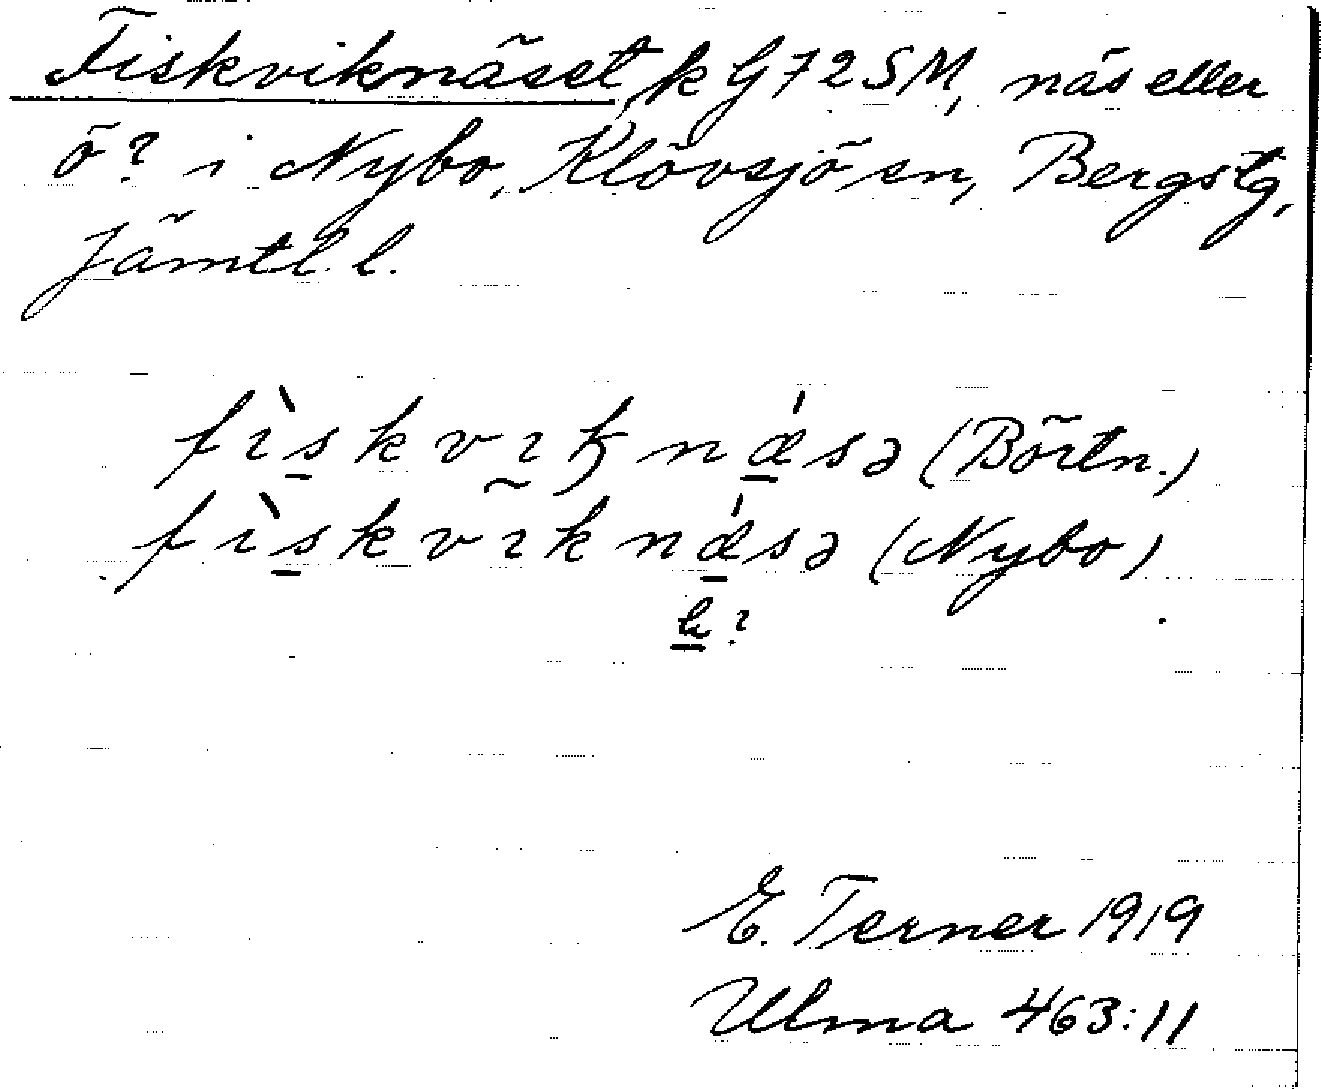 Fiskviknäset, k G72SM, näs eller
ö? i Nybo, Klövsjö sn, Bergs tg,
Jämtl. l.
fìskvıꞣnǽsə (Börtn.)
fìskvıknǽsə (Nybo)
E. Terner 1919
Ulma 463:11